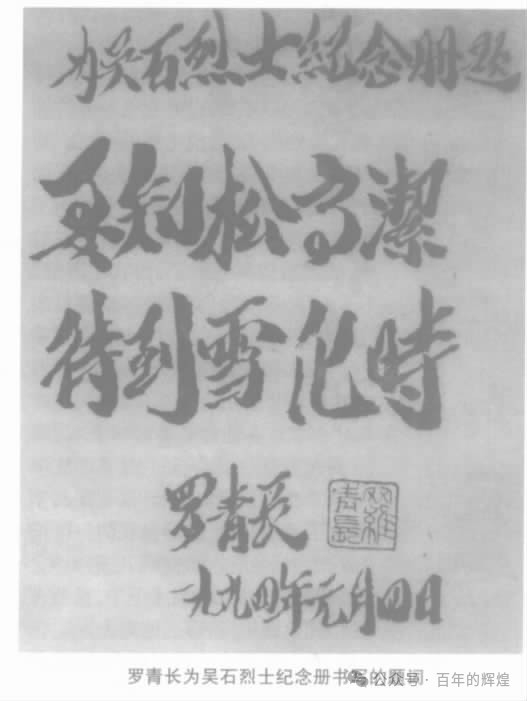 为吴石烈士纪念册题
要知松高潔
待到雪化時
罗青长
羅青長
一九九四年元月四日
罗青长为吴石烈士纪念册书写的题词
公众号·百年的辉煌